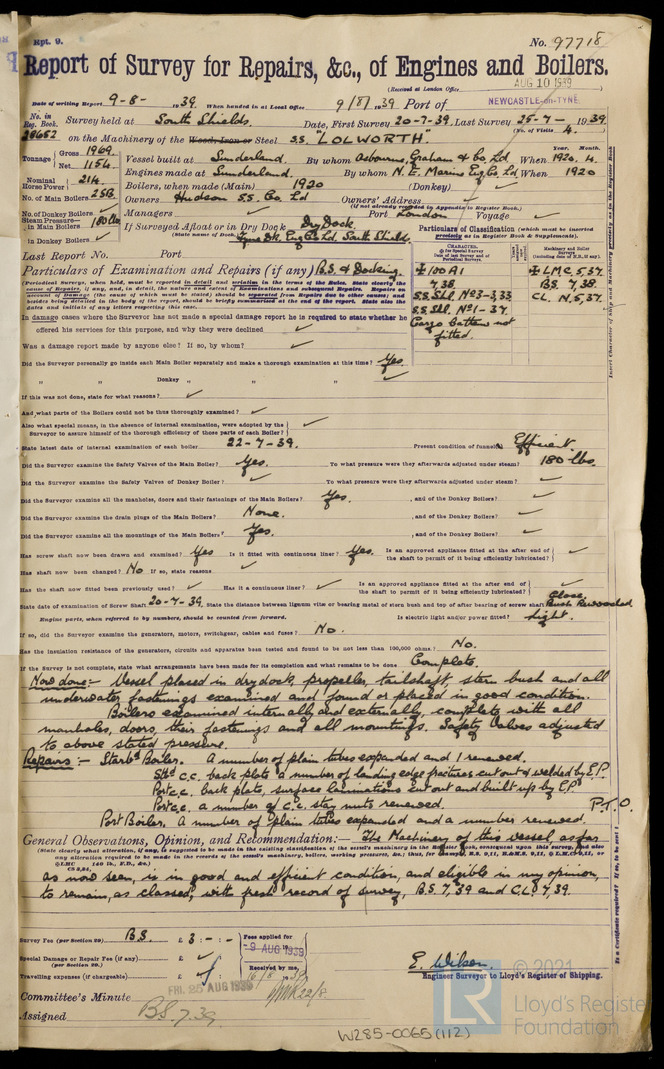 Rpt. 9.
No. 97718
Report of Survey for Repairs, &c., of Engines and Boilers.
(Received at London Office
AUG 10 1939
Date of writing Report 9-8- 1939 When handed in at Local Office 9/8/1939 Port of NEWCASTLE-on-TYNE
No. in Reg. Book. Survey held at South Shields. Date, First Survey 20-7-39. Last Survey 25-7- 1939
(No. of Visits 4.)
28652 on the Machinery of the Wood, Iron or Steel S.S. "LOLWORTH".
Tonnage Gross 1969. Net 1154.
Vessel built at Sunderland. By whom Osbourne, Graham & Co. Ld When 1920. 4.
Year. Month.
Nominal Horse Power 214.
Engines made at Sunderland. By whom N.E. Marine Eng Co. Ld When 1920
Boilers, when made (Main) 1920 (Donkey) ✓
No. of Main Boilers 2SB.
Owners Hudson SS. Co. Ld Owners' Address ✓
(if not already recorded in Appendix to Register Book.)
No. of Donkey Boilers ✓
Managers ✓ Port London Voyage ✓
Steam Pressure— in Main Boilers 180 lbs
in Donkey Boilers ✓
If Surveyed Afloat or in Dry Dock Dry Dock.
(State name of Dock.) Tyne Dk. Eng Co Ld. South Shields.
Particulars of Classification (which must be inserted precisely as in Register Book & Supplements).
Last Report No. Port
Particulars of Examination and Repairs (if any) B.S. & Docking.
CHARACTER.
✠100A1
7,38.
S.S. Shl. No3-3,33
S.S. Shl. No1-37.
Cargo battens not fitted.
Machinery and Boiler Surveys
✠LMC.5,37.
BS. 7,38
CL. N.5,37.
(Periodical Surveys, when held, must be reported in detail and seriatim in the terms of the Rules. State clearly the cause of Repairs, if any, and, in detail, the nature and extent of Examinations and subsequent Repairs. Repairs on account of Damage (the cause of which must be stated) should be separated from Repairs due to other causes; and besides being detailed in the body of the report, should be briefly summarised at the end of the report. State also the dates and initials of any letters respecting this case.)
In damage cases where the Surveyor has not made a special damage report he is required to state whether he
offered his services for this purpose, and why they were declined ✓
Was a damage report made by anyone else? If so, by whom? ✓
Did the Surveyor personally go inside each Main Boiler separately and make a thorough examination at this time? Yes.
" " Donkey " " " " ✓
If this was not done, state for what reasons? ✓
And what parts of the Boilers could not be thus thoroughly examined? ✓
Also what special means, in the absence of internal examination, were adopted by the
Surveyor to assure himself of the thorough efficiency of those parts of each Boiler? ✓
State latest date of internal examination of each boiler 22-7-39. Present condition of funnel(s) Efficient.
Did the Surveyor examine the Safety Valves of the Main Boiler? Yes. To what pressure were they afterwards adjusted under steam? 180 lbs.
Did the Surveyor examine the Safety Valves of Donkey Boiler? ✓ To what pressure were they afterwards adjusted under steam? ✓
Did the Surveyor examine all the manholes, doors and their fastenings of the Main Boilers? Yes. , and of the Donkey Boilers? ✓
Did the Surveyor examine the drain plugs of the Main Boilers? None. , and of the Donkey Boilers? ✓
Did the Surveyor examine all the mountings of the Main Boilers? Yes. , and of the Donkey Boilers? ✓
Has screw shaft now been drawn and examined? Yes Is it fitted with continuous liner? Yes. Is an approved appliance fitted at the after end of the shaft to permit of it being efficiently lubricated? ✓
Has shaft now been changed? No If so, state reasons ✓
Has the shaft now fitted been previously used? ✓ Has it a continuous liner? ✓ Is an approved appliance fitted at the after end of the shaft to permit of it being efficiently lubricated? ✓
State date of examination of Screw Shaft 20-7-39. State the distance between lignum vitæ or bearing metal of stern bush and top of after bearing of screw shaft Close. Bush Rewooded
Engine parts, when referred to by numbers, should be counted from forward. Is electric light and/or power fitted? Light.
If so, did the Surveyor examine the generators, motors, switchgear, cables and fuses? No.
Has the insulation resistance of the generators, circuits and apparatus been tested and found to be not less than 100,000 ohms? No.
If the Survey is not complete, state what arrangements have been made for its completion and what remains to be done Complete.
Now done:- Vessel placed in drydock, propeller, tailshaft, stern bush and all
underwater fastenings examined and found or placed in good condition.
Boilers examined internally and externally, complete with all
manholes, doors, their fastenings and all mountings. Safety valves adjusted
to above stated pressure.
Repairs:- Starbd Boiler. A number of plain tubes expanded and 1 renewed.
Stbd c.c. back plate a number of landing edge fractures cut out & welded by E.P.
Port c.c. back plate, surface laminations cut out and built up by E.P.
Port c.c. a number of c.c. stay nuts renewed. P.T.O.
Port Boiler. A number of plain tubes expanded and a number renewed.
General Observations, Opinion, and Recommendation:— The Machinery of this vessel as far
as now seen, is in good and efficient condition, and eligible in my opinion,
to remain, as classed, with fresh record of survey, B.S. 7,39 and C.L. 7,39.
Survey Fee (per Section 29) B.S. £ 3 : - : -
Special Damage or Repair Fee (if any) (per Section 29.) £ ✓
Travelling expenses (if chargeable) £
Fees applied for
-9 AUG 1939
Received by me,
E. Wilson.
Engineer Surveyor to Lloyd's Register of Shipping.
Committee's Minute FRI. 25 AUG 1939
Assigned B.S. 7.39
© 2021
LR
Lloyd's Register
Foundation
W285-0065(112)